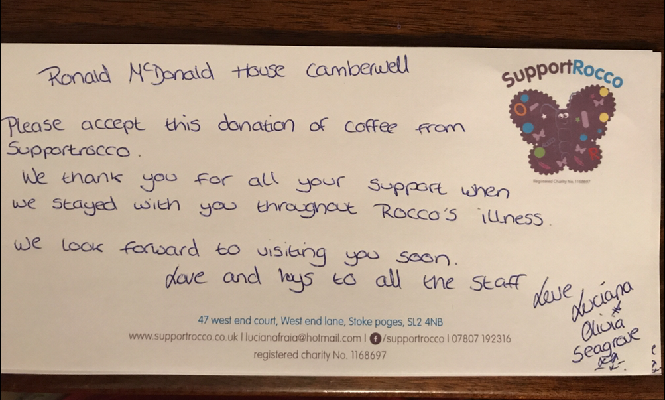 Ronald McDonald House Camberwell
SupportRocco
Please accept this donation of coffee from
Supportrocco.
We thank you for all your support when
we stayed with you throughout Rocco's illness.
We look forward to visiting you soon.
Love and hugs to all the staff
Love
Luciana
*
Olivia
Seagrove
Registered Charity No. 1168697
47 west end court, West end lane, Stoke poges, SL2 4NB
www.supportrocco.co.uk | lucianafraia@hotmail.com | f /supportrocco | 07807 192316
registered charity No. 1168697